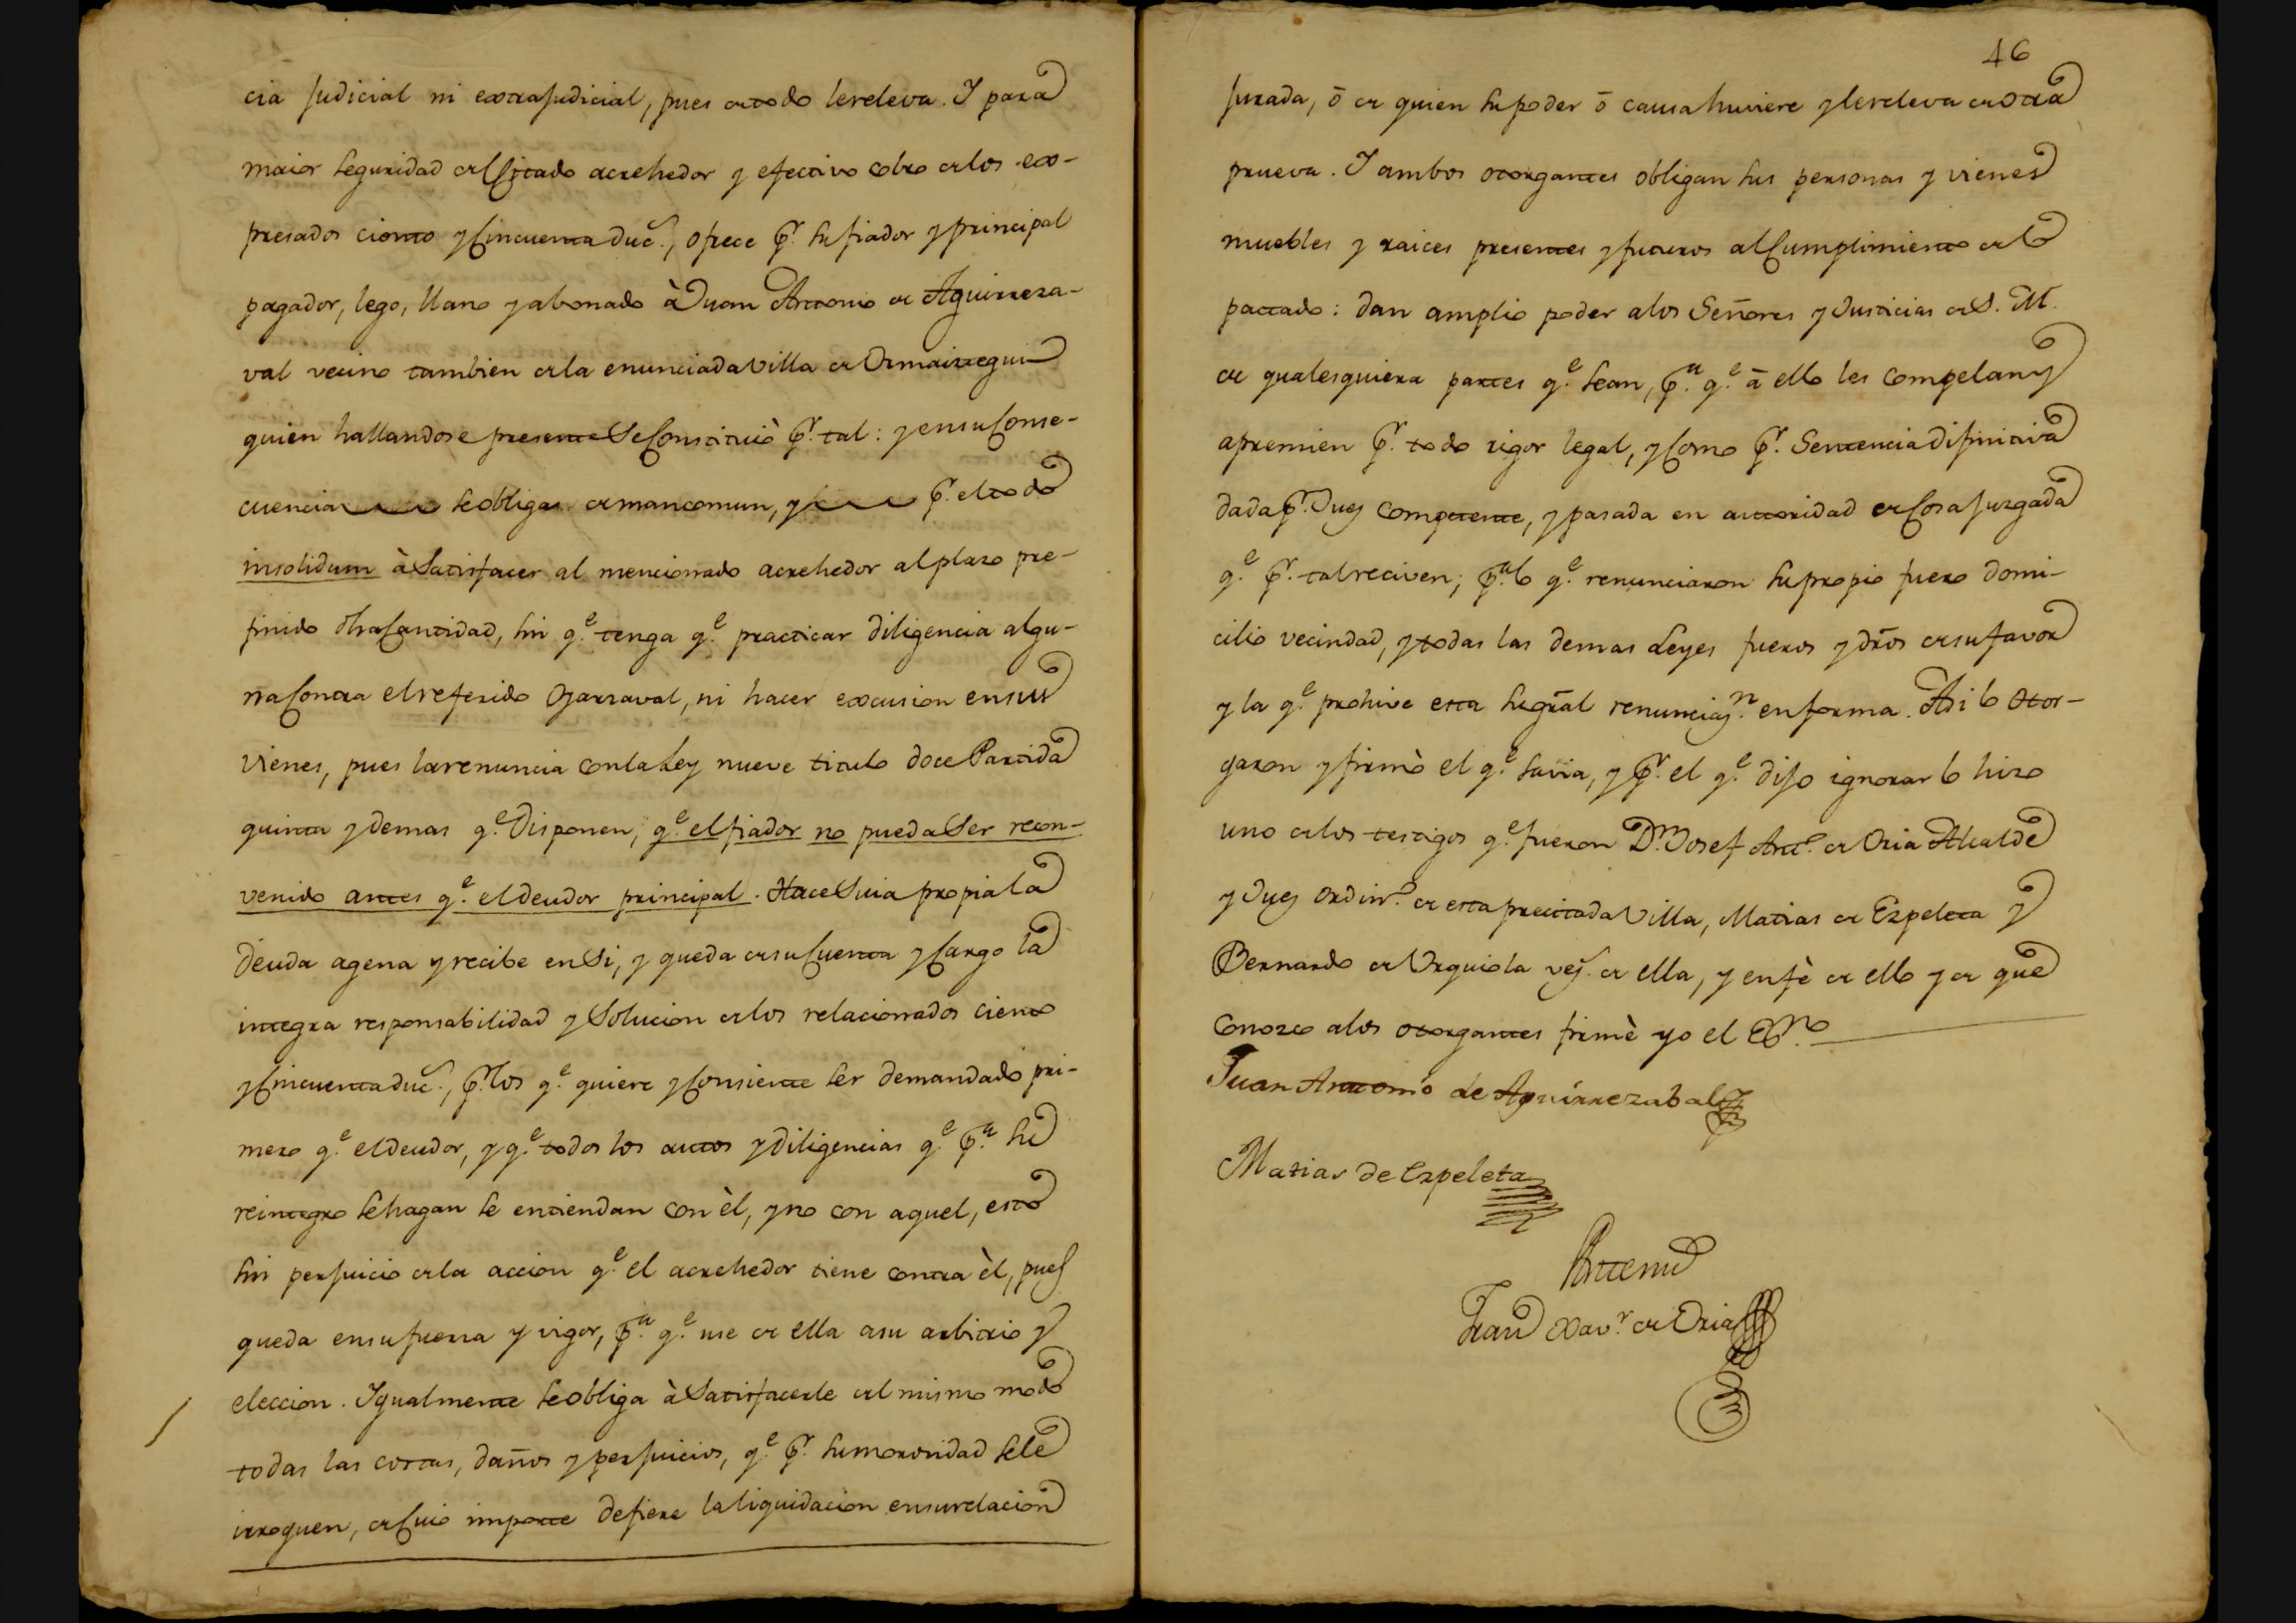 cia judicial ni extrajudicial, pues de todo le releva. I para
maior seguridad del citado acrehedor y efectivo cobro de los ex-
presados ciento y cincuenta duc.s, ofrece p.r su fiador y principal
pagador, lego, llano y abonado à Juan Antonio de Aguirreza-
val vecino tambien de la enunciada villa de Urnairregui
quien hallandose presente se constituiò p.r tal: y en su conse-
cuencia se obligan de mancomun, y p.r el todo
insolidum à satisfacer al mencionado acrehedor al plazo pre-
finido dha cantidad, sin q.e tenga q.e practicar diligencia algu-
na contra el referido Ojarzaval, ni hacer excusion en sus
vienes, pues la renuncia con la Ley nueve titulo doce Partida
quinta y demas q.e disponen, q.e el fiador no pueda ser recon-
venido antes q.e el deudor principal. Hace suia propia la
deuda agena y recibe en si, y queda de su cuenta y cargo la
integra responsabilidad y solucion de los relacionados ciento
y cincuenta duc.s, p.r los q.e quiere y consiente ser demandado pri-
mero q.e el deudor, y q.e todos los autos y diligencias q.e p.a su
reintegro se hagan se entiendan con èl, y no con aquel, esto
sin perjuicio de la accion q.e el acrehedor tiene contra èl, pues
queda en su fuerza y vigor, p.a q.e use de ella a su arbitrio y
eleccion. Igualmente se obliga à satisfacerle del mismo modo
todas las costas, daños y perjuicios, q.e p.r su morosidad se le
irroguen, de cuio importe defiere la liquidacion en su relacion
46
jurada, ō de quien su poder ō causa huviere y le releva de otra
prueva. I ambos otorgantes obligan sus personas y vienes
muebles y raices presentes y futuros al cumplimiento de lo
pactado: dan amplio poder a los Señores y Justicias de S. M.
de qualesquiera partes q.e sean, p.a q.e ā ello les compelan y
apremien p.r todo rigor legal, y como p.r Sentencia difinitiva
dada p.r Juez competente, y pasada en autoridad de cosa juzgada
q.e p.r tal reciven; p.a lo q.e renunciaron su propio fuero domi-
cilio vecindad, y todas las demas Leyes fueros y drõs de su favor
y la q.e prohive esta su grãl renunciaz.n en forma. Asi lo otor-
garon y firmò el q.e savia, y p.r el q.e dijo ignorar lo hizo
uno de los testigos q.e fueron D.n Josef Ant.o de Oria Alcalde
y Juez ordin.o de esta precitada Villa, Matias de Ezpeleta y
Bernardo de Urquiola vez.s de ella, y en fè de ello y de que
conozco a los otorgantes firmè yo el Ess.no
Juan Antonio de Aguirrezabal
Matias de Ezpeleta
Antemi
Fran.co Xav.r de Oria